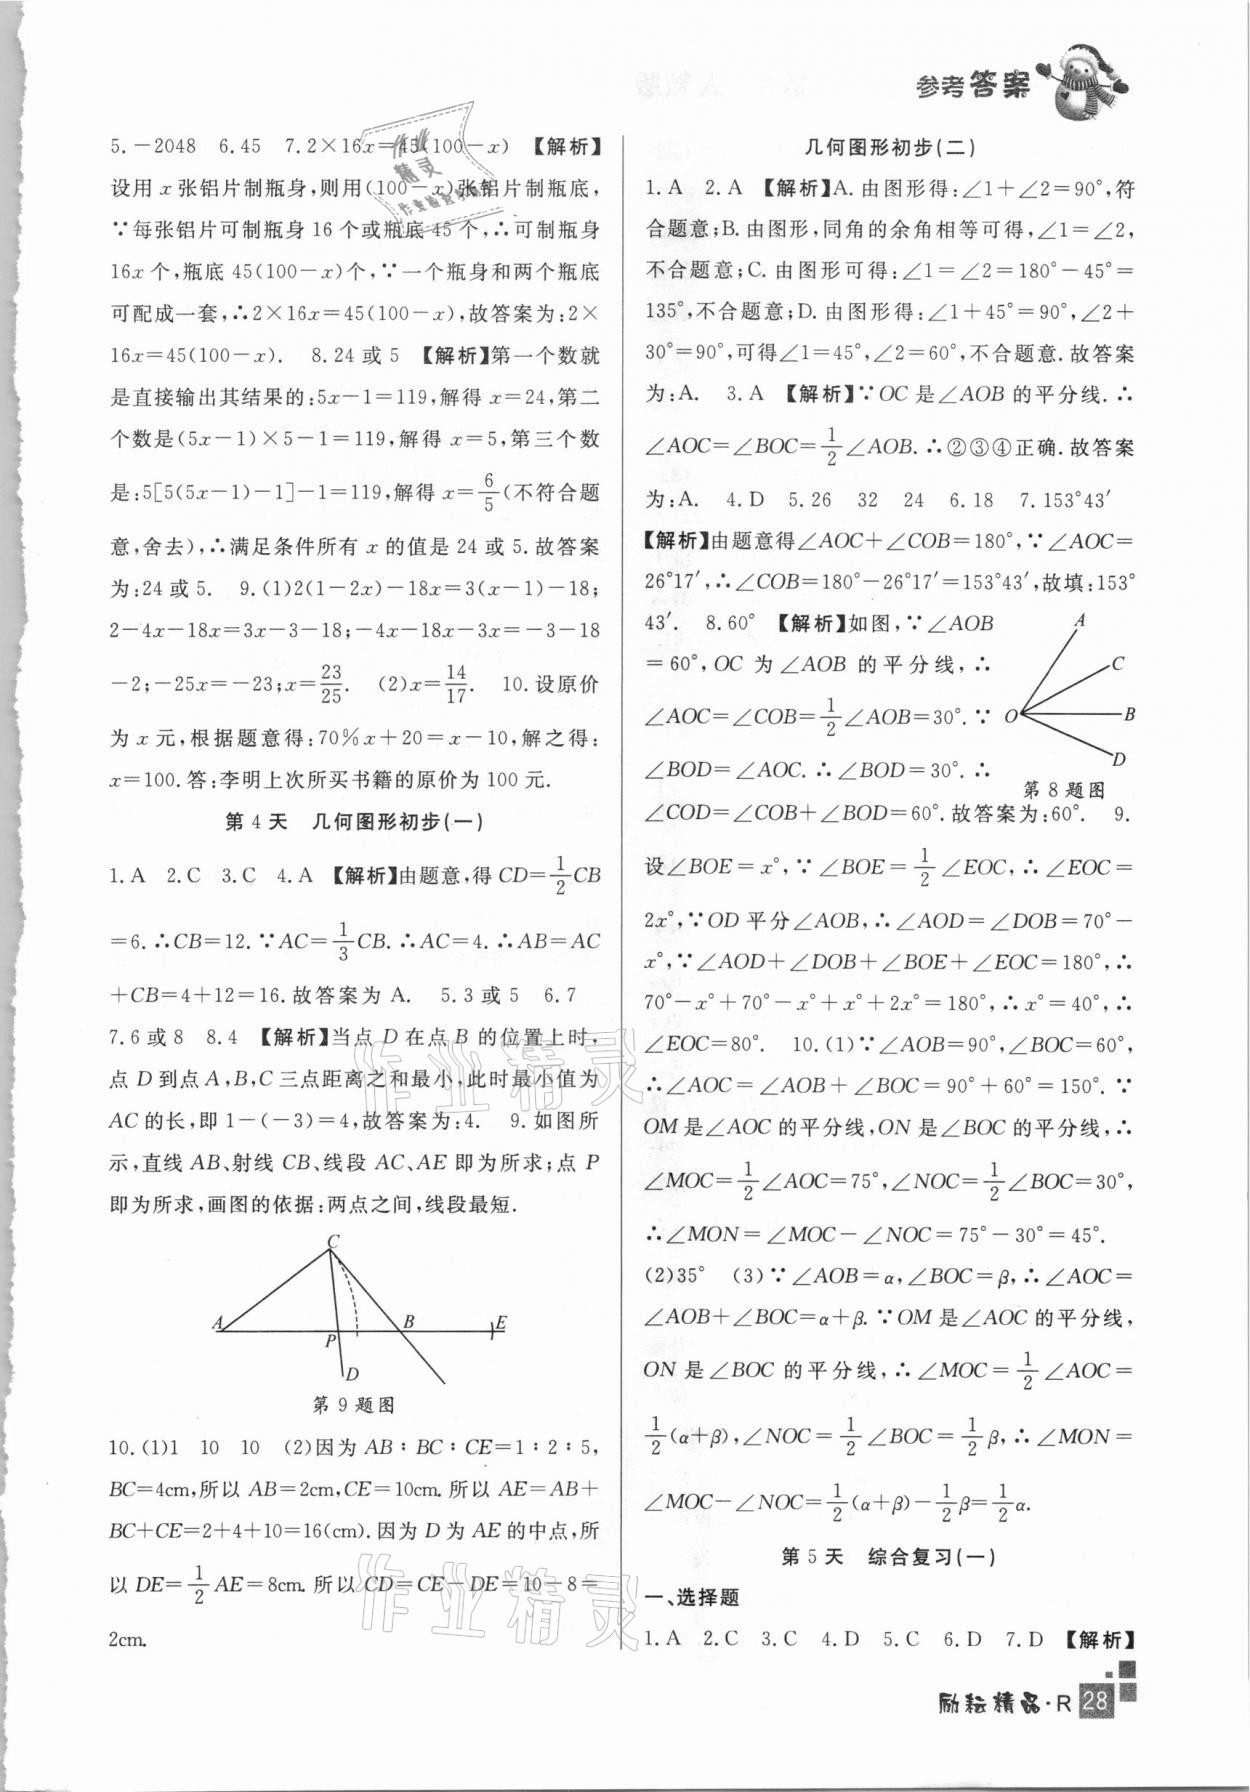 参考答案
5.－2048　6.45　7.2×16x＝45(100－x)　【解析】
设用 x 张铝片制瓶身,则用(100－x)张铝片制瓶底,
∵每张铝片可制瓶身 16 个或瓶底 45 个,∴可制瓶身
16x 个,瓶底 45(100－x)个,∵一个瓶身和两个瓶底
可配成一套,∴2×16x＝45(100－x),故答案为:2×
16x＝45(100－x).　8.24 或 5　【解析】第一个数就
是直接输出其结果的:5x－1＝119,解得 x＝24,第二
个数是(5x－1)×5－1＝119,解得 x＝5,第三个数
是:5[5(5x－1)－1]－1＝119,解得 x＝6/5(不符合题
意,舍去),∴满足条件所有 x 的值是 24 或 5.故答案
为:24 或 5.　9.(1)2(1－2x)－18x＝3(x－1)－18;
2－4x－18x＝3x－3－18;－4x－18x－3x＝－3－18
－2;－25x＝－23;x＝23/25.　(2)x＝14/17.　10.设原价
为 x 元,根据题意得:70%x＋20＝x－10,解之得:
x＝100.答:李明上次所买书籍的原价为 100 元.
第 4 天　几何图形初步(一)
1.A　2.C　3.C　4.A　【解析】由题意,得 CD＝1/2CB
＝6.∴CB＝12.∵AC＝1/3CB.∴AC＝4.∴AB＝AC
＋CB＝4＋12＝16.故答案为 A.　5.3 或 5　6.7
7.6 或 8　8.4　【解析】当点 D 在点 B 的位置上时,
点 D 到点 A,B,C 三点距离之和最小,此时最小值为
AC 的长,即 1－(－3)＝4,故答案为:4.　9.如图所
示,直线 AB、射线 CB、线段 AC、AE 即为所求;点 P
即为所求,画图的依据:两点之间,线段最短.
C
A
P
B
E
D
第 9 题图
10.(1)1　10　10　(2)因为 AB∶BC∶CE＝1∶2∶5,
BC＝4cm,所以 AB＝2cm,CE＝10cm.所以 AE＝AB＋
BC＋CE＝2＋4＋10＝16(cm).因为 D 为 AE 的中点,所
以 DE＝1/2AE＝8cm.所以 CD＝CE－DE＝10－8＝
2cm.
几何图形初步(二)
1.A　2.A　【解析】A.由图形得:∠1＋∠2＝90°,符
合题意;B.由图形,同角的余角相等可得,∠1＝∠2,
不合题意;C.由图形可得:∠1＝∠2＝180°－45°＝
135°,不合题意;D.由图形得:∠1＋45°＝90°,∠2＋
30°＝90°,可得∠1＝45°,∠2＝60°,不合题意.故答案
为:A.　3.A　【解析】∵OC 是∠AOB 的平分线.∴
∠AOC＝∠BOC＝1/2∠AOB.∴②③④正确.故答案
为:A.　4.D　5.26　32　24　6.18　7.153°43′
【解析】由题意得∠AOC＋∠COB＝180°,∵∠AOC＝
26°17′,∴∠COB＝180°－26°17′＝153°43′,故填:153°
43′.　8.60°　【解析】如图,∵∠AOB
＝60°,OC 为∠AOB 的平分线,∴
∠AOC＝∠COB＝1/2∠AOB＝30°.∵
∠BOD＝∠AOC.∴∠BOD＝30°.∴
A
C
O
B
D
第 8 题图
∠COD＝∠COB＋∠BOD＝60°.故答案为:60°.　9.
设∠BOE＝x°,∵∠BOE＝1/2∠EOC,∴∠EOC＝
2x°,∵OD 平分∠AOB,∴∠AOD＝∠DOB＝70°－
x°,∵∠AOD＋∠DOB＋∠BOE＋∠EOC＝180°,∴
70°－x°＋70°－x°＋x°＋2x°＝180°,∴x°＝40°,∴
∠EOC＝80°.　10.(1)∵∠AOB＝90°,∠BOC＝60°,
∴∠AOC＝∠AOB＋∠BOC＝90°＋60°＝150°.∵
OM 是∠AOC 的平分线,ON 是∠BOC 的平分线,∴
∠MOC＝1/2∠AOC＝75°,∠NOC＝1/2∠BOC＝30°,
∴∠MON＝∠MOC－∠NOC＝75°－30°＝45°.
(2)35°　(3)∵∠AOB＝α,∠BOC＝β,∴∠AOC＝
∠AOB＋∠BOC＝α＋β.∵OM 是∠AOC 的平分线,
ON 是∠BOC 的平分线,∴∠MOC＝1/2∠AOC＝
1/2(α＋β),∠NOC＝1/2∠BOC＝1/2β,∴∠MON＝
∠MOC－∠NOC＝1/2(α＋β)－1/2β＝1/2α.
第 5 天　综合复习(一)
一、选择题
1.A　2.C　3.C　4.D　5.C　6.D　7.D　【解析】
励耘精品·R 28
作业精灵
作业精灵
作业精灵